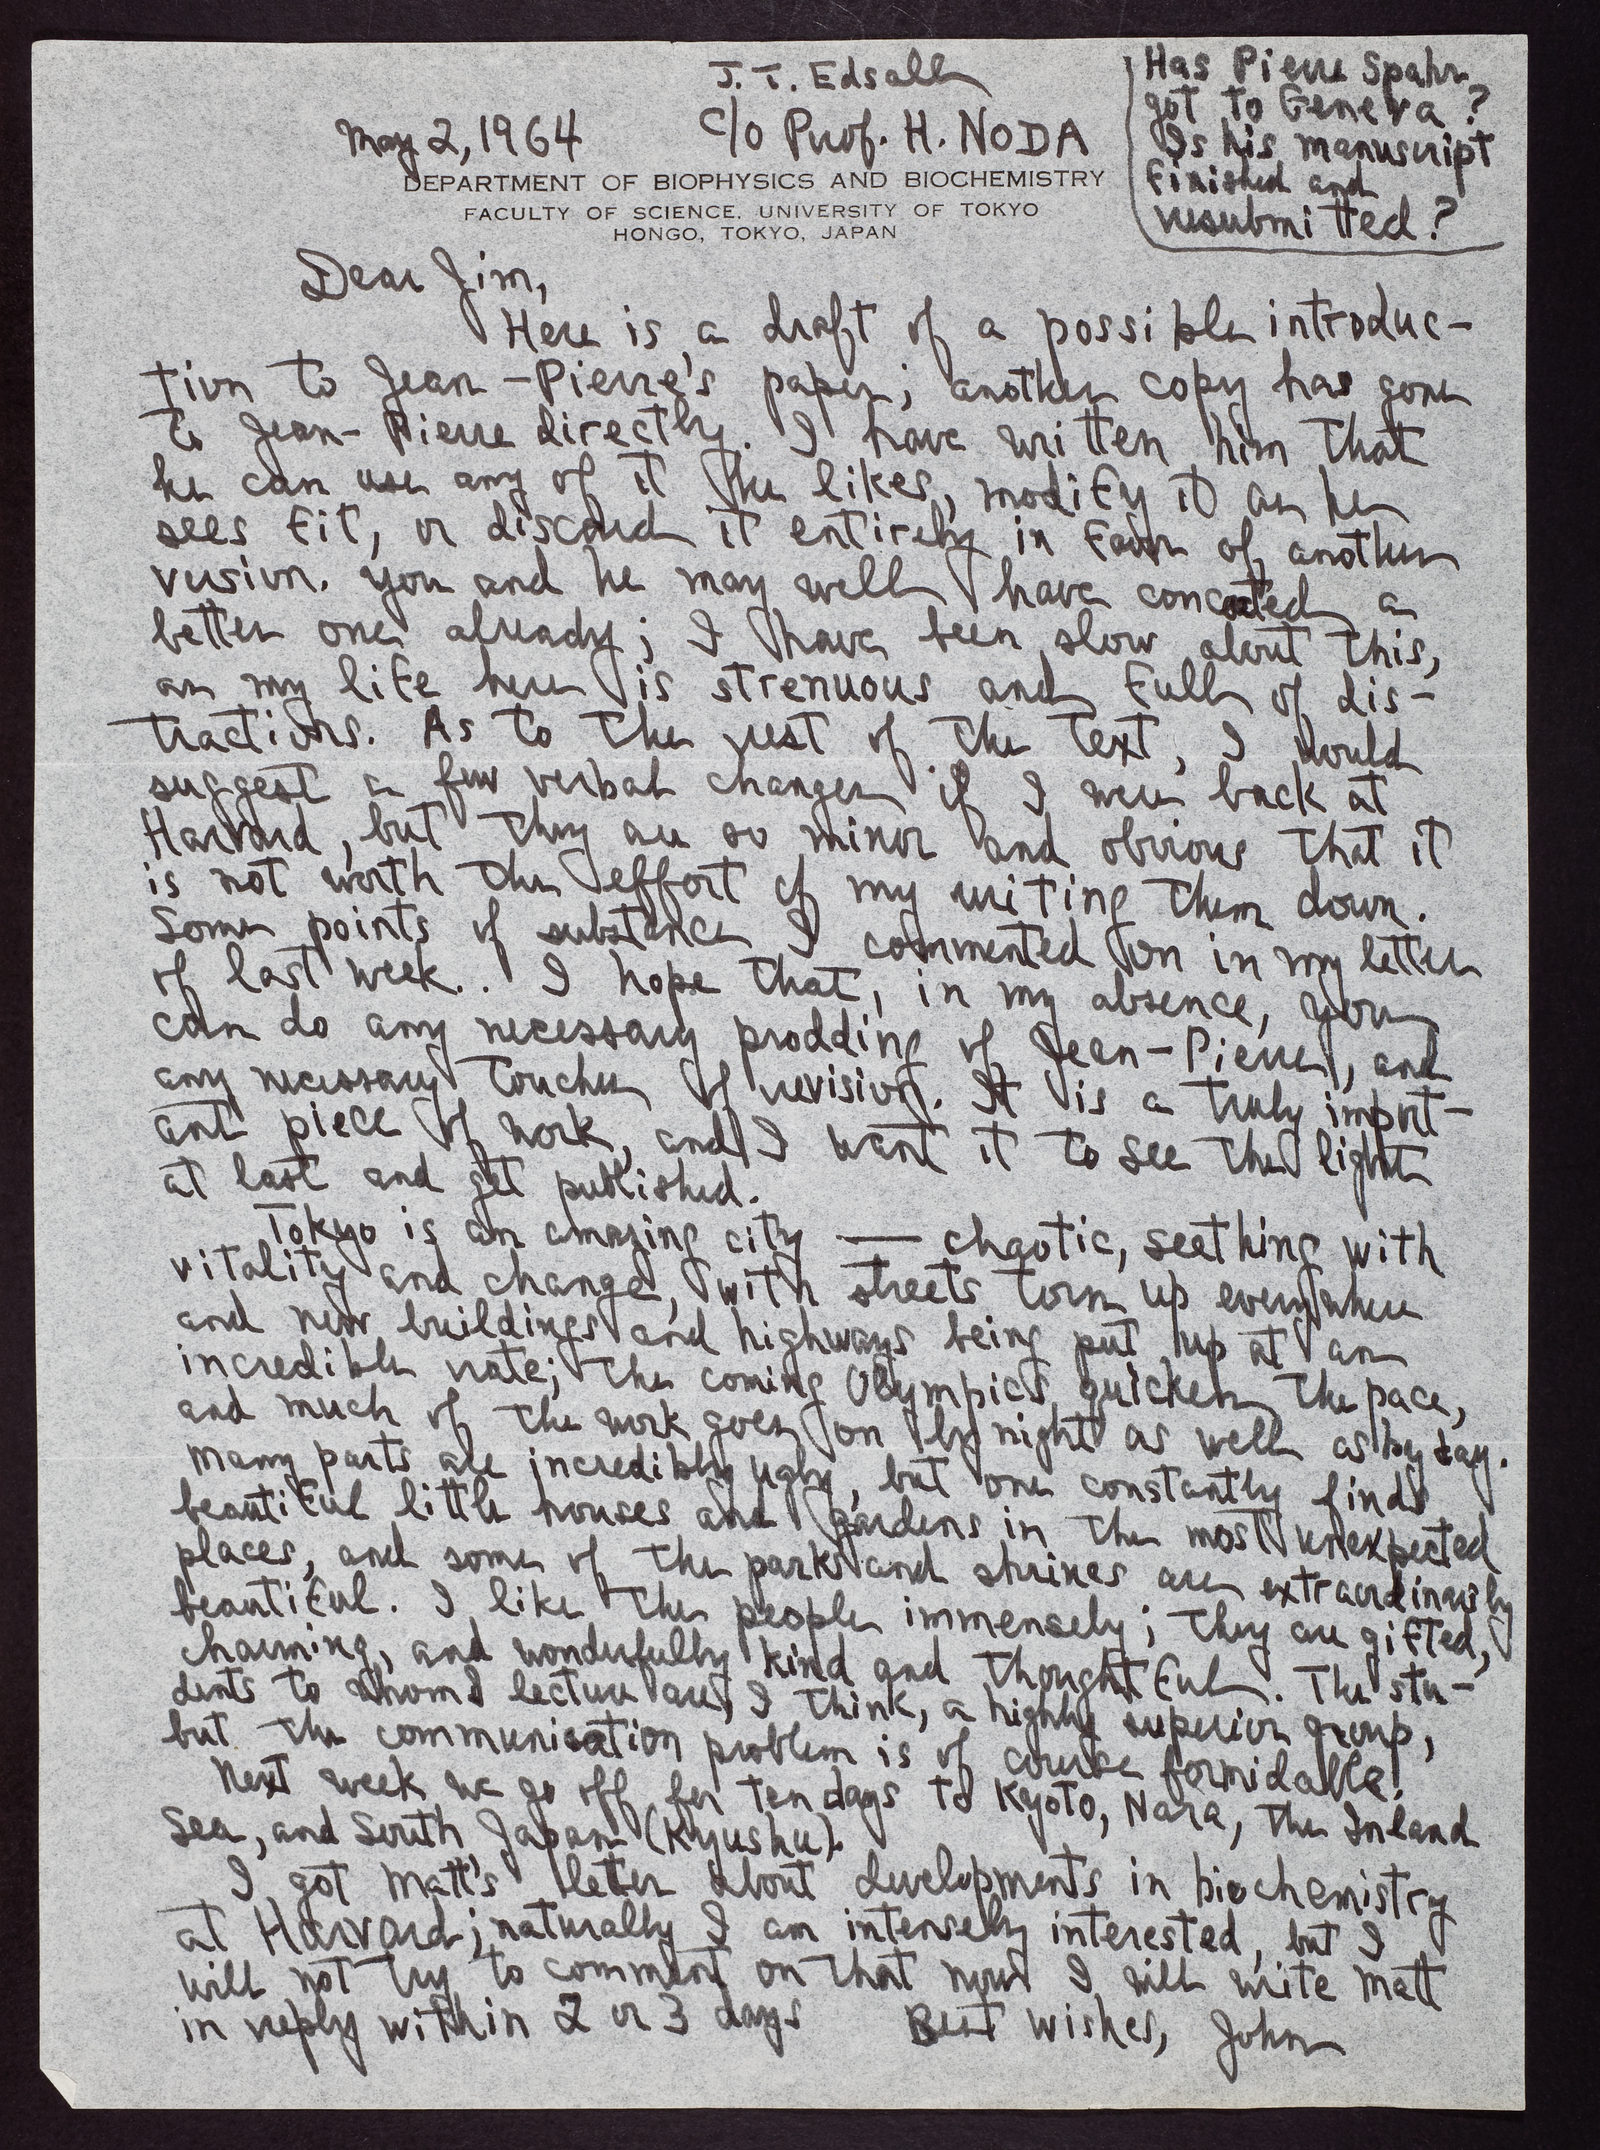 J. T. Edsall
May 2, 1964
c/o Prof. H. NODA
DEPARTMENT OF BIOPHYSICS AND BIOCHEMISTRY
FACULTY OF SCIENCE, UNIVERSITY OF TOKYO
HONGO, TOKYO, JAPAN
Has Pierre Spahr
got to Geneva?
Is his manuscript
finished and
resubmitted?
Dear Jim,
Here is a draft of a possible introduc-
tion to Jean-Pierre's paper; another copy has gone
to Jean-Pierre directly. I have written him that
he can use any of it he likes, modify it as he
sees fit, or discard it entirely in favor of another
version. You and he may well have concocted a
better one already; I have been slow about this,
as my life here is strenuous and full of dis-
tractions. As to the rest of the text, I would
suggest a few verbal changes if I were back at
Harvard, but they are so minor and obvious that it
is not worth the effort of my writing them down.
Some points of substance I commented on in my letter
of last week.. I hope that, in my absence, you
can do any necessary prodding of Jean-Pierre, and
any necessary touches of revision. It is a truly import-
ant piece of work, and I want it to see the light
at last and get published.
Tokyo is an amazing city — chaotic, seething with
vitality and change, with streets torn up everywhere
and new buildings and highways being put up at an
incredible rate; the coming Olympics quicken the pace,
and much of the work goes on by night as well as by day.
Many parts are incredibly ugly, but one constantly finds
beautiful little houses and gardens in the most unexpected
places, and some of the parks and shrines are extraordinarily
beautiful. I like the people immensely; they are gifted,
charming, and wonderfully kind and thoughtful. The stu-
dents to whom I lecture are, I think, a highly superior group,
but the communication problem is of course formidable!
Next week we go off for ten days to Kyoto, Nara, the Inland
Sea, and South Japan (Kyushu).
I got Matt's letter about developments in biochemistry
at Harvard; naturally I am intensely interested, but I
will not try to comment on that now I will write Matt
in reply within 2 or 3 days Best wishes, John